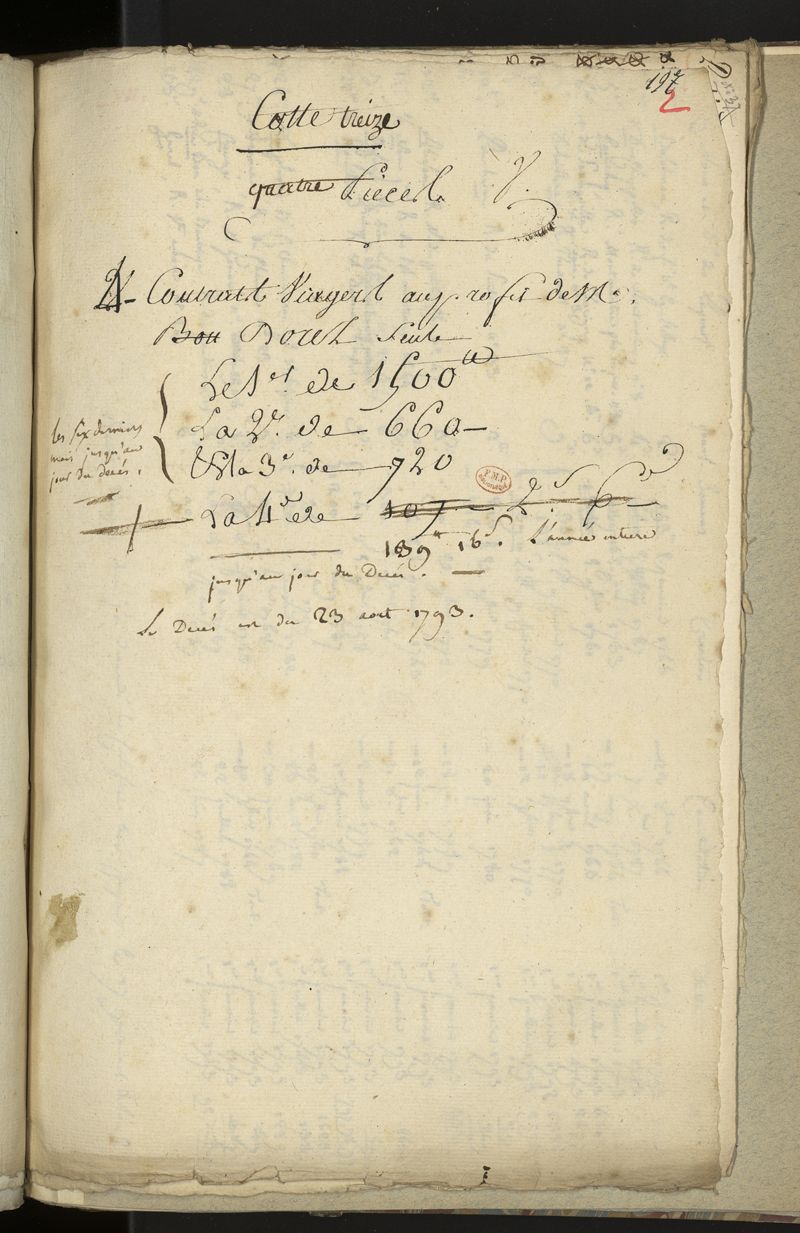 197
2
Cotte treize
quatre Pieces
4 Contrats Viagers au profit de M.
Bon Dorez seule
Le 1er de 1500 tt
La 2e. de 660
Et la 3e. de 720
les six derniers
mois jusqu'au
jour du decés.
La 4e de 107 2 s 6 d
189 tt 16 s. L'année entiere
jusqu'au jour du Decés.
Le Decés est du 23 aout 1793.